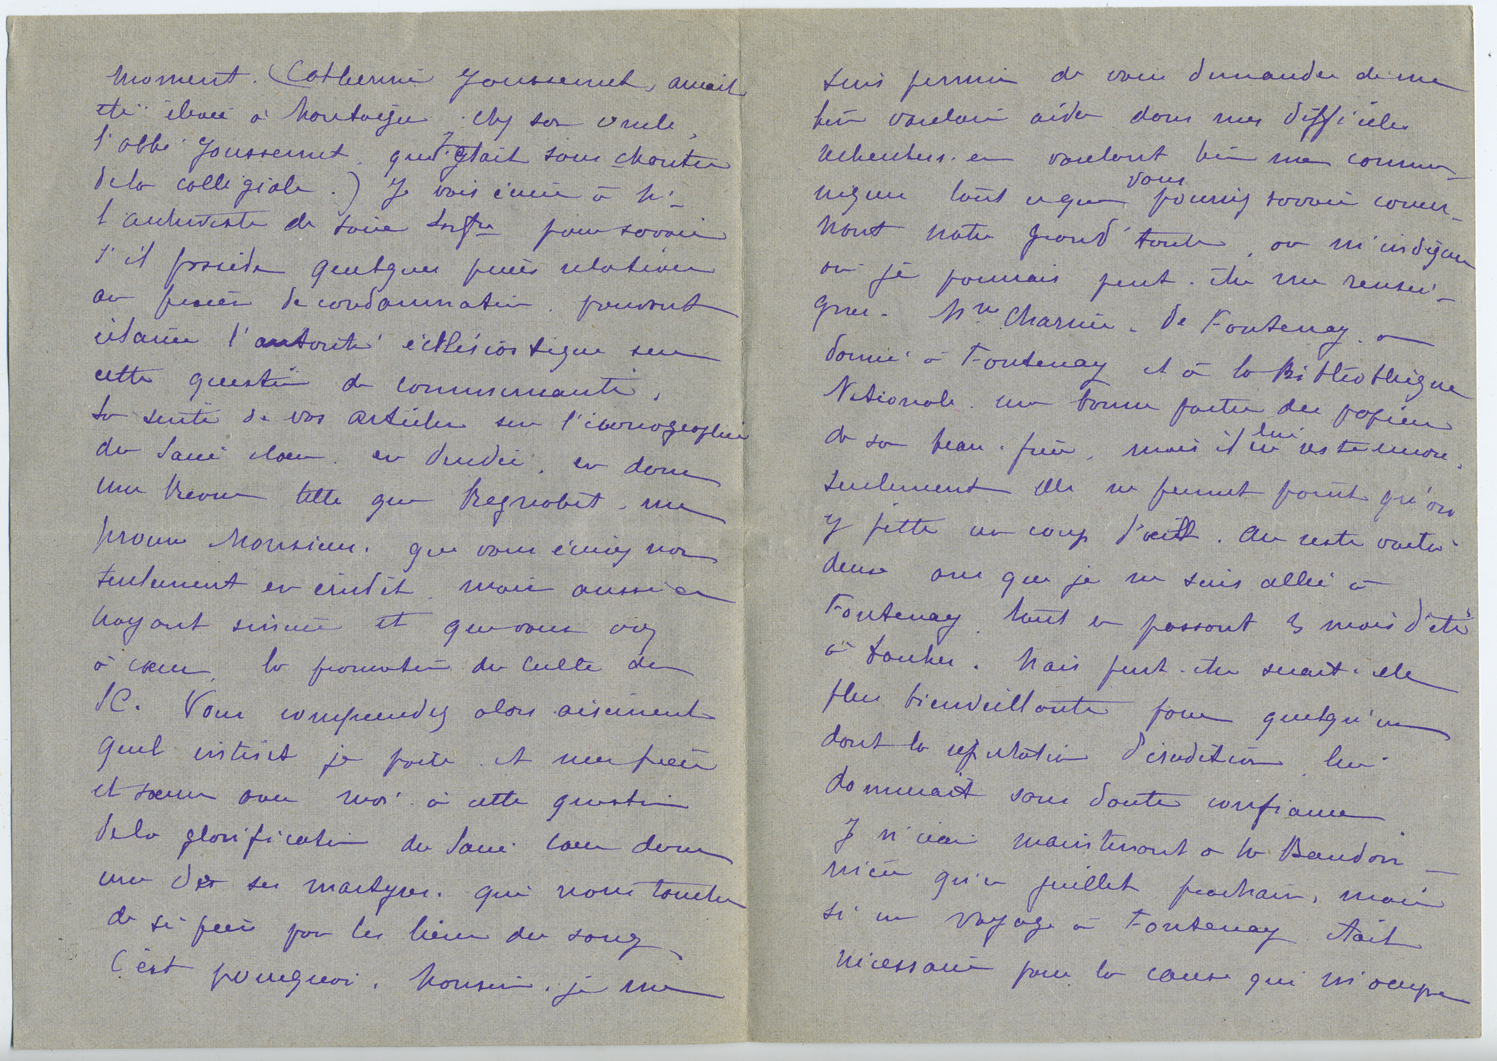 moment. (Catherine Joussemet, avait
été élevée à Montaigu chez son oncle,
l'abbé Joussemet, qui était sous chantre
de la collégiale.) Je vais écrire à Mr
l'archiviste de Loire Infre pour savoir
s'il possède quelques pièces relatives
au procès de condamnation, pouvant
éclairer l'autorité ecclésiastique sur
cette question de
La suite de vos articles sur l'iconographie
du Sacré Coeur en Vendée, en dans
une Revue telle que Regnabit, me
prouve Monsieur, que vous écrivez non
seulement en érudit, mais aussi en
croyant sincère et que vous avez
à coeur, la promotion du culte du
SC. Vous comprendrez alors aisément
quel intérêt je porte et mes frères
et soeurs avec moi à cette question
de la glorification du Sacré Coeur dans
une de ses martyres, qui nous touche
de si près par les liens du sang
C'est pourquoi, Monsieur, je me
suis permis de vous demander de me
bien vouloir aider dans mes difficiles
recherches en voulant bien me commu-
niquer tout ce que vous pourriez savoir concer-
nant notre grand'tante, ou m'indiquer
où je pourrais peut-être me rensei-
gner. Mme Charrier, de Fontenay, a
donné à Fontenay et à la Bibliothèque
Nationale une bonne partie des papiers
de son beau-frère, mais il lui en reste encore,
seulement elle ne permet point qu'on
y jette un coup d'oeil. Au reste voici
deux ans que je ne suis allée à
Fontenay, tout en passant 3 mois d'été
à Mais peut-être serait-elle
plus bienveillante pour quelqu'un
dont la réputation d'érudition lui
donnerait sans doute confiance
Je n'irai maintenant à la Baudon-
nière qu'en juillet prochain, mais
si un voyage à Fontenay était
nécessaire pour la cause qui m'occupe